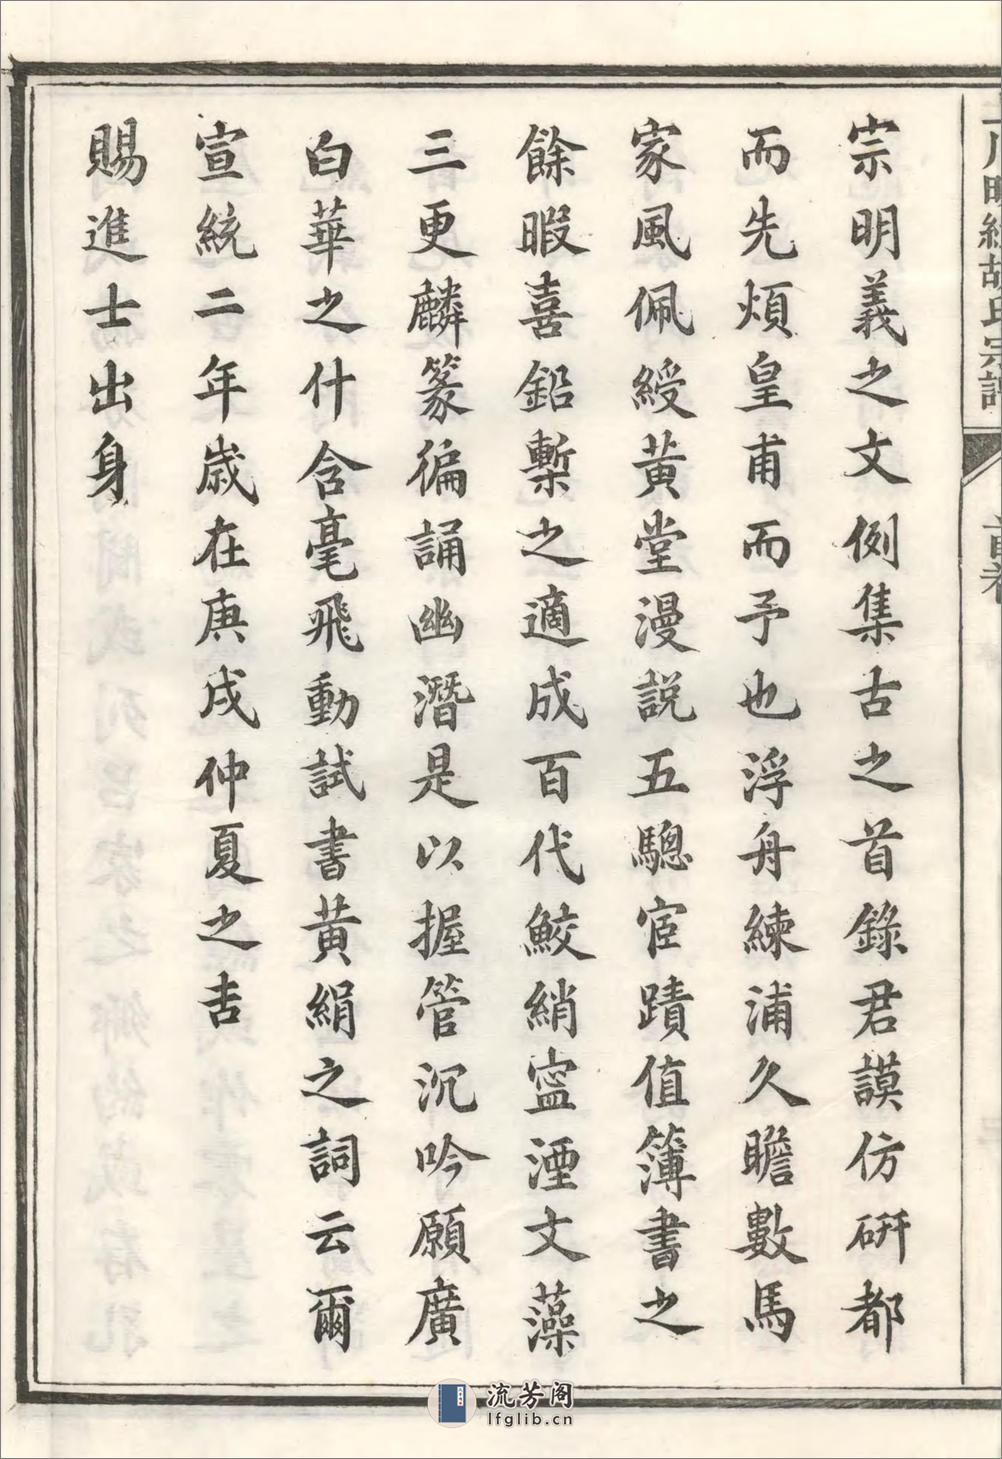 明經胡氏宗譜
首卷
宗明義之文例集古之首錄君謨仿硏都
而先煩皇甫而予也浮舟練浦久瞻數馬
家風佩綬黃堂漫説五驄宦蹟值簿書之
餘暇喜鉛槧之適成百代鮫綃寍湮文藻
三更麟篆徧誦幽潛是以握管沉吟願廣
白華之什含毫飛動試書黃絹之詞云爾
宣統二年歲在庚戌仲夏之吉
賜進士出身
流芳阁
lfglib.cn